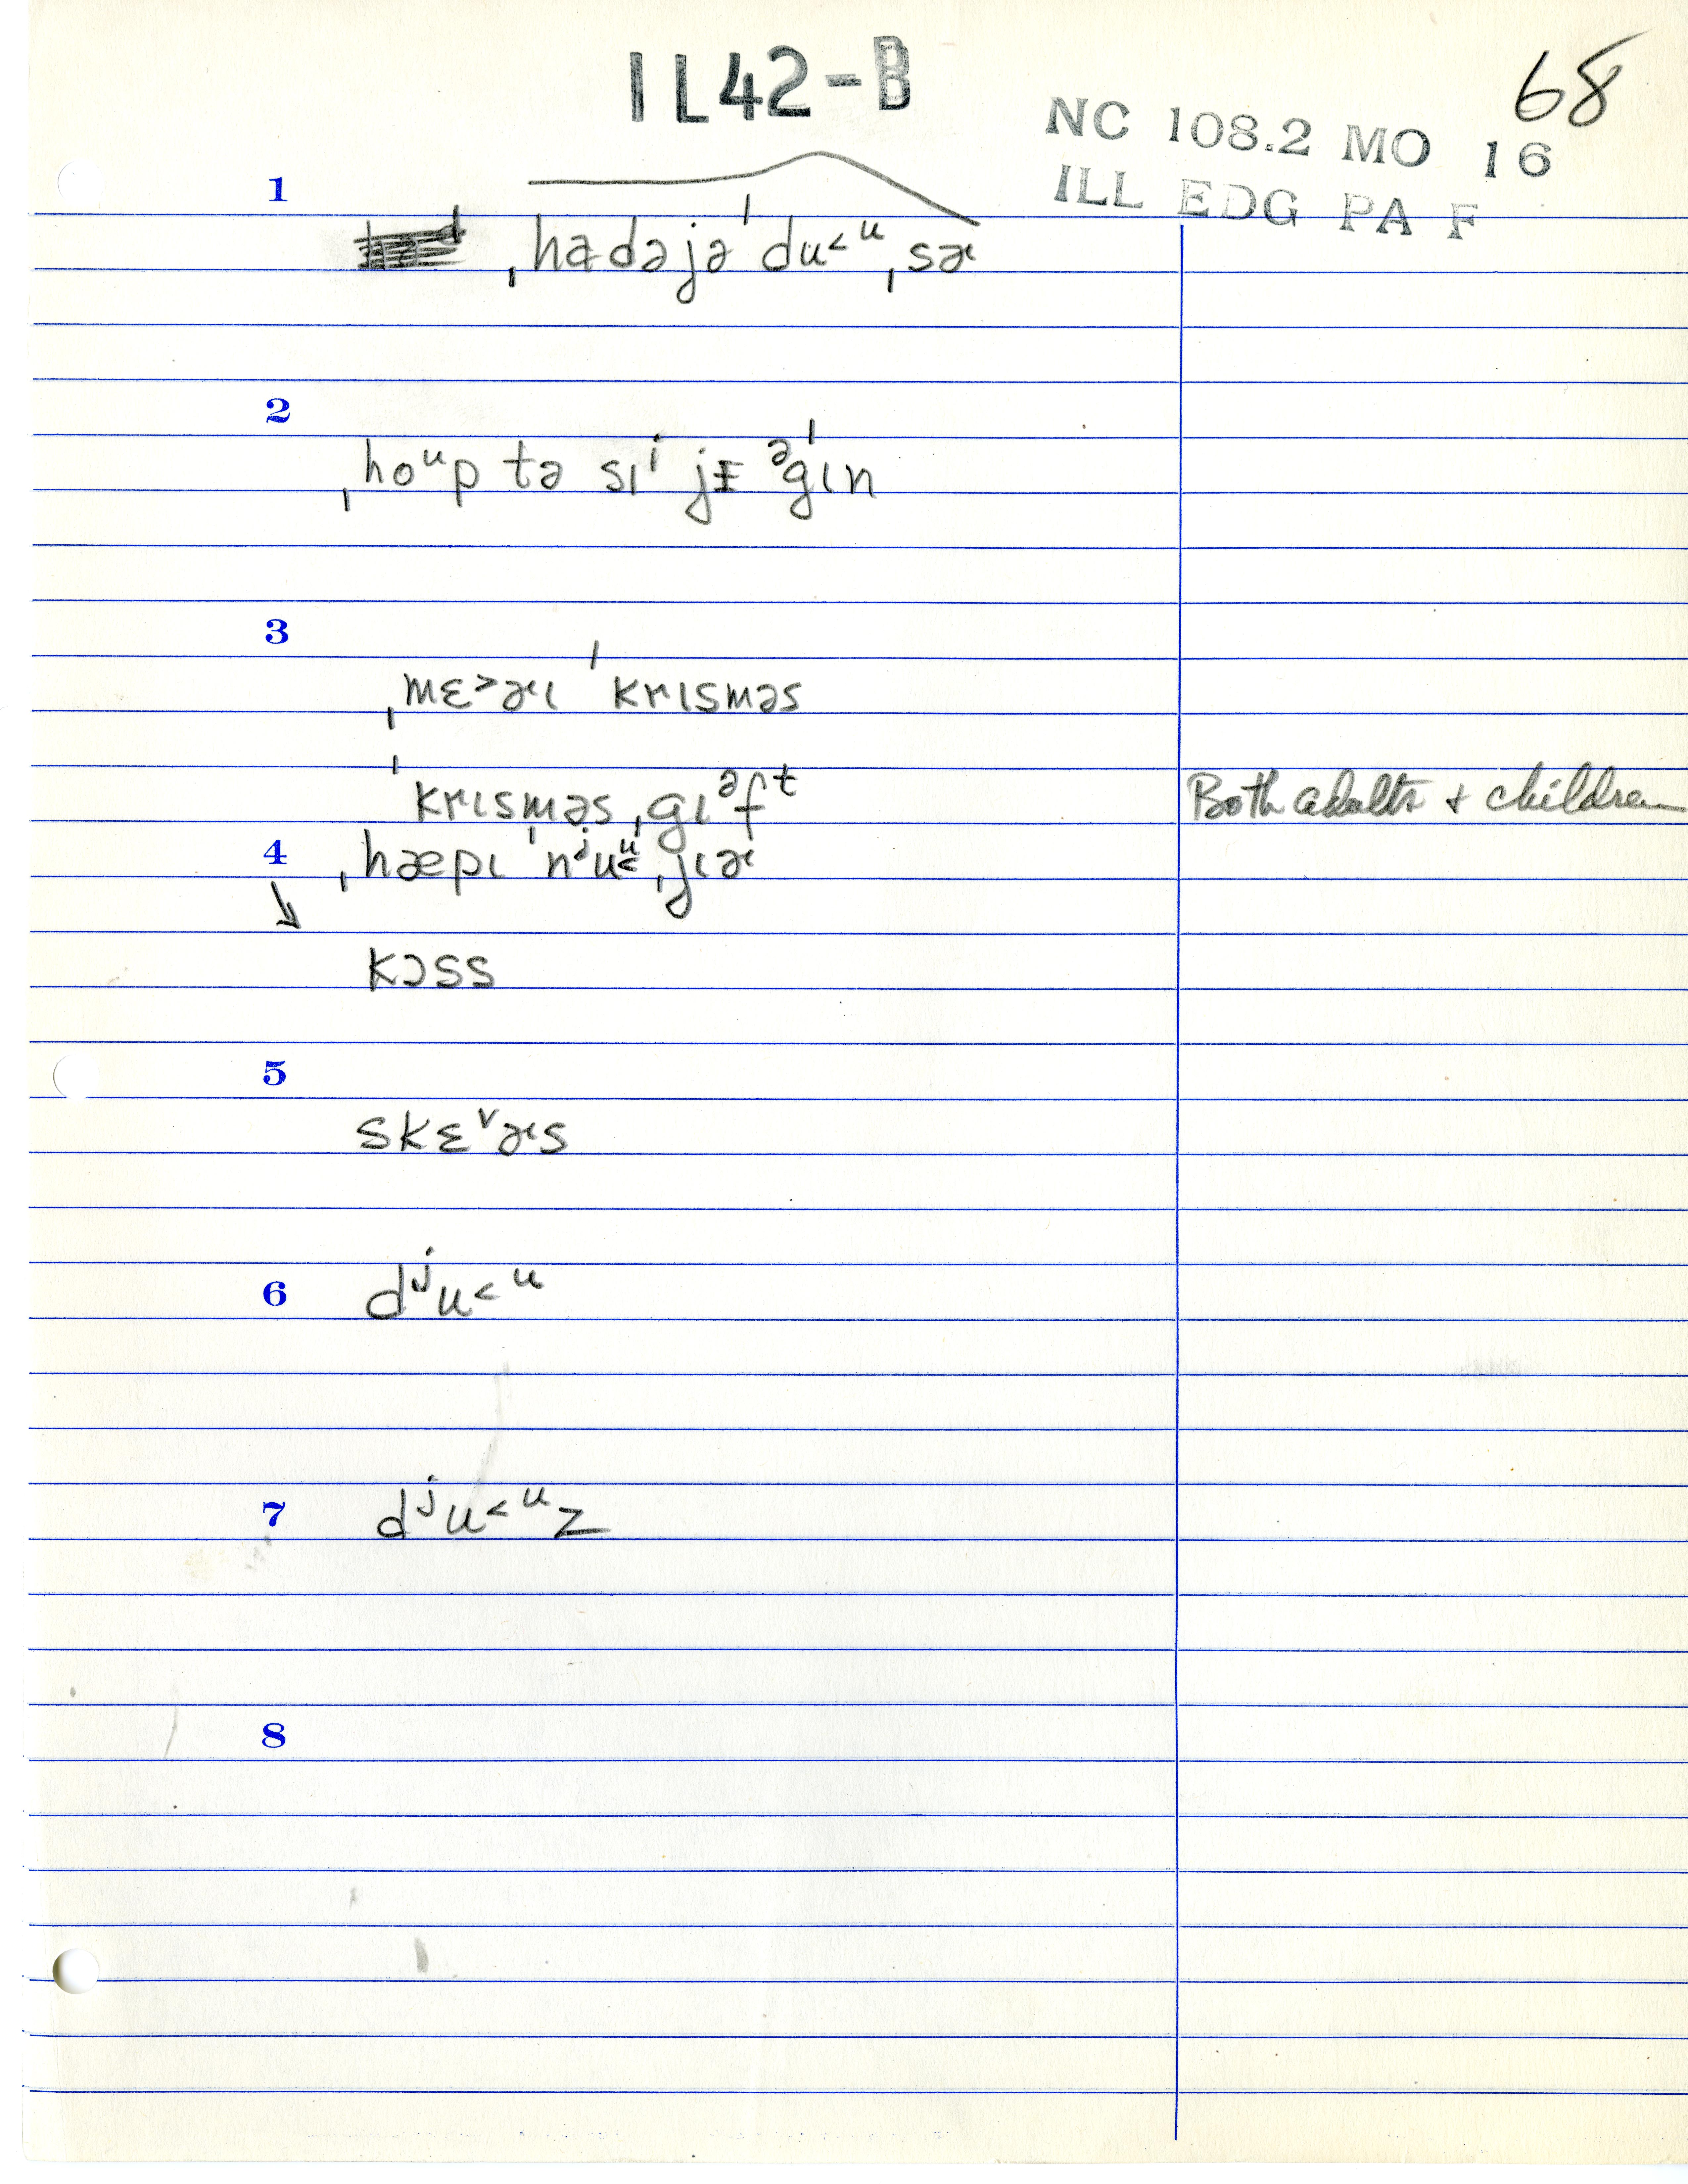 IL42-B
68
NC 108.2 MO 16
ILL EDG PA F
1
ˌhadəjəˈdu˂ᵘˌsɚ
2
ˌhoᵘp tə sɪⁱ jɪ ᵊˈgɩn
3
ˌmɛ˃ɚɩ ˈkrɩsməs
ˈkrɩsməsˌgɩᵊfᵗ Both adults + children
4 ˌhæpɩ ˈnʲu˂ᵘˌjɩɚ
↘
kɔss
5
skɛ˅ɚs
6 dʲu˂ᵘ
7 dʲu˂ᵘz
8